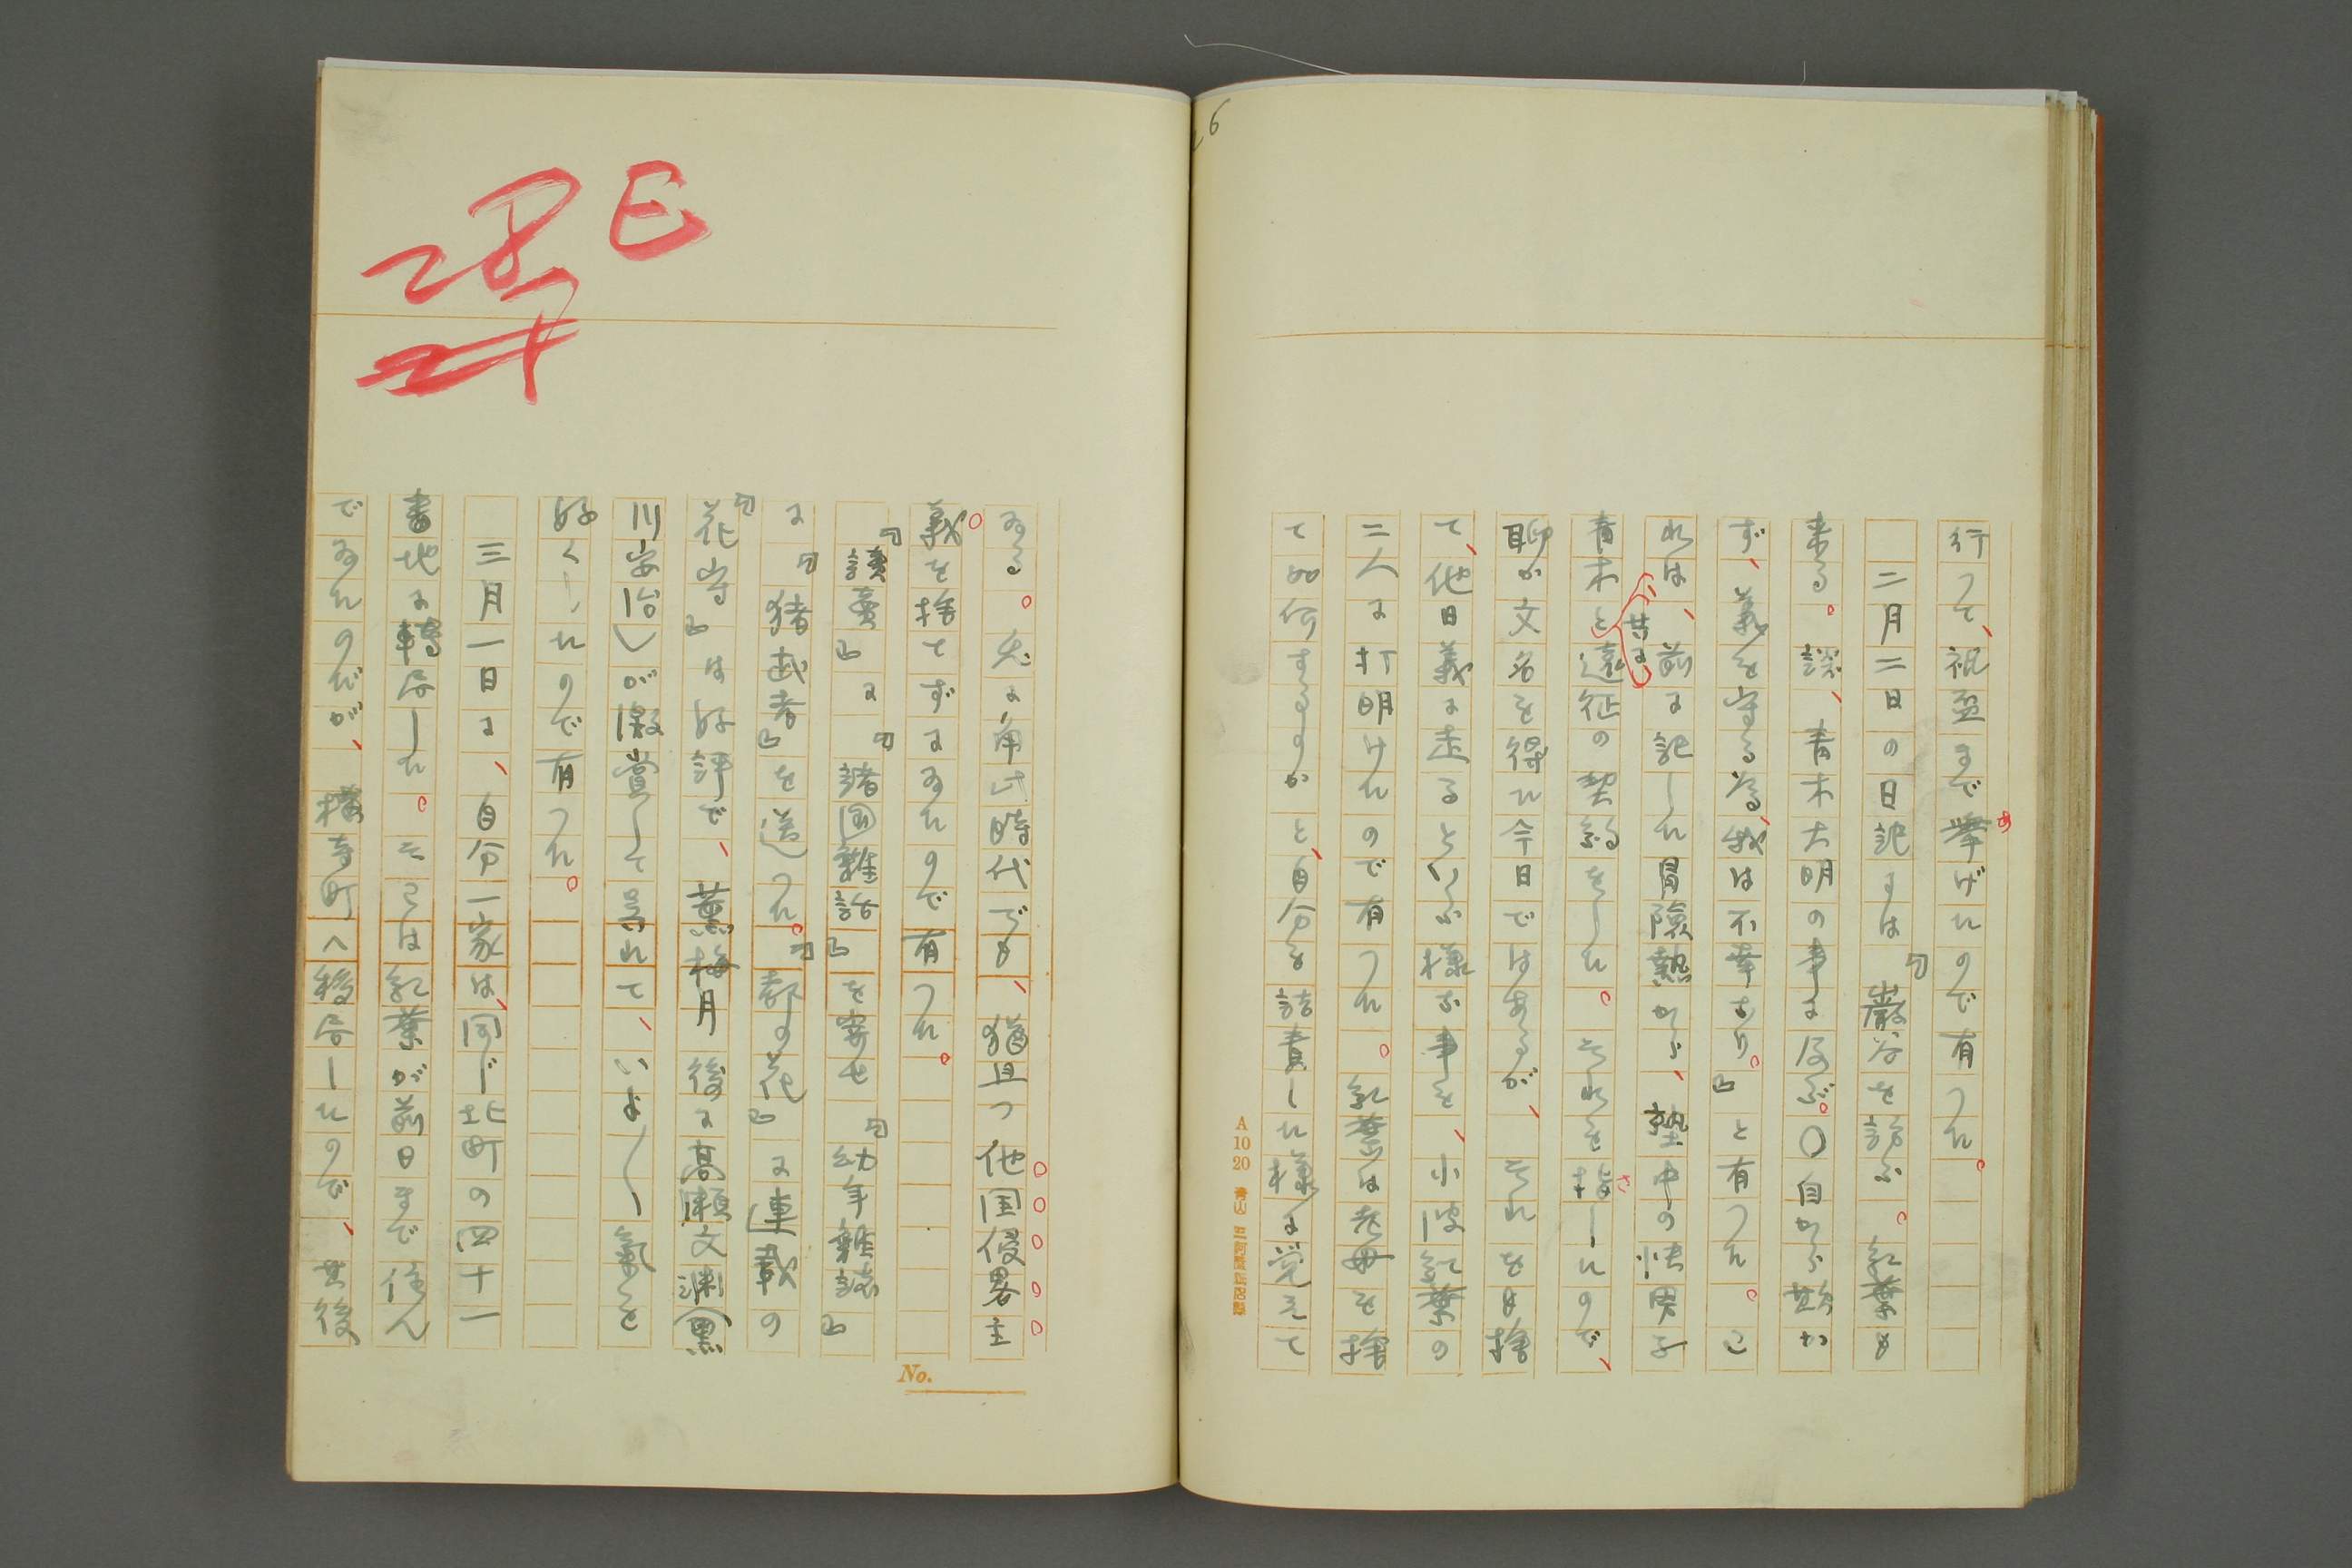 26
行つて、祝盃まで挙げたので有つた。
あ
二月二日の日記には『巌谷を訪ふ。紅葉も
来る。談、青木大明の事に及ぶ。〇自から欺か
ず、義を守る為、我は不幸なり。』と有つた。こ
れは、前に記した冒険熱から、塾中の快男子
青木と遠征の契約をした。それを指したので、
共に
さ
聊か文名を得た今日ではあるが、それをも捨
て、他日義に走るといふ様な事を、小波紅葉の
二人に打明けたので有つた。紅葉は老母を捨
て如何するのかと、自分を詰責した様に覚えて
A 10 20
ゐる。兎に角此時代でも、猶且つ他国侵畧主
義を捨てずにゐたので有つた。
『読売』に『諸国雑話』を寄せ『幼年雑誌』
に『猪武者』を送つた。『都の花』に連載の
『花守』は好評で、薫梅月後に高瀬文淵(黒
川安治)が激賞して呉れて、いよ〳〵気を
好くしたので有つた。
三月一日に、自分一家は、同じ北町の四十一
番地に転居した。そこは紅葉が前日まで住ん
でゐたのだが、横寺町へ移居したので、其後
No.
E
28